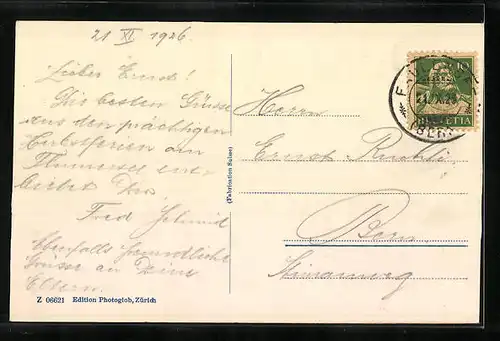 21 XI 1926
Lieber Ernst!
Die besten Grüsse
aus den prächtigen
Herbstferien am
Dein
Fred Schmid
Ebenfalls freundliche
Grüsse an Deine
Eltern.
Z 06621 Edition Photoglob, Zürich
(Fabrication Suisse)
Herrn
Ernst
Bern
10
HELVETIA
(BERN)